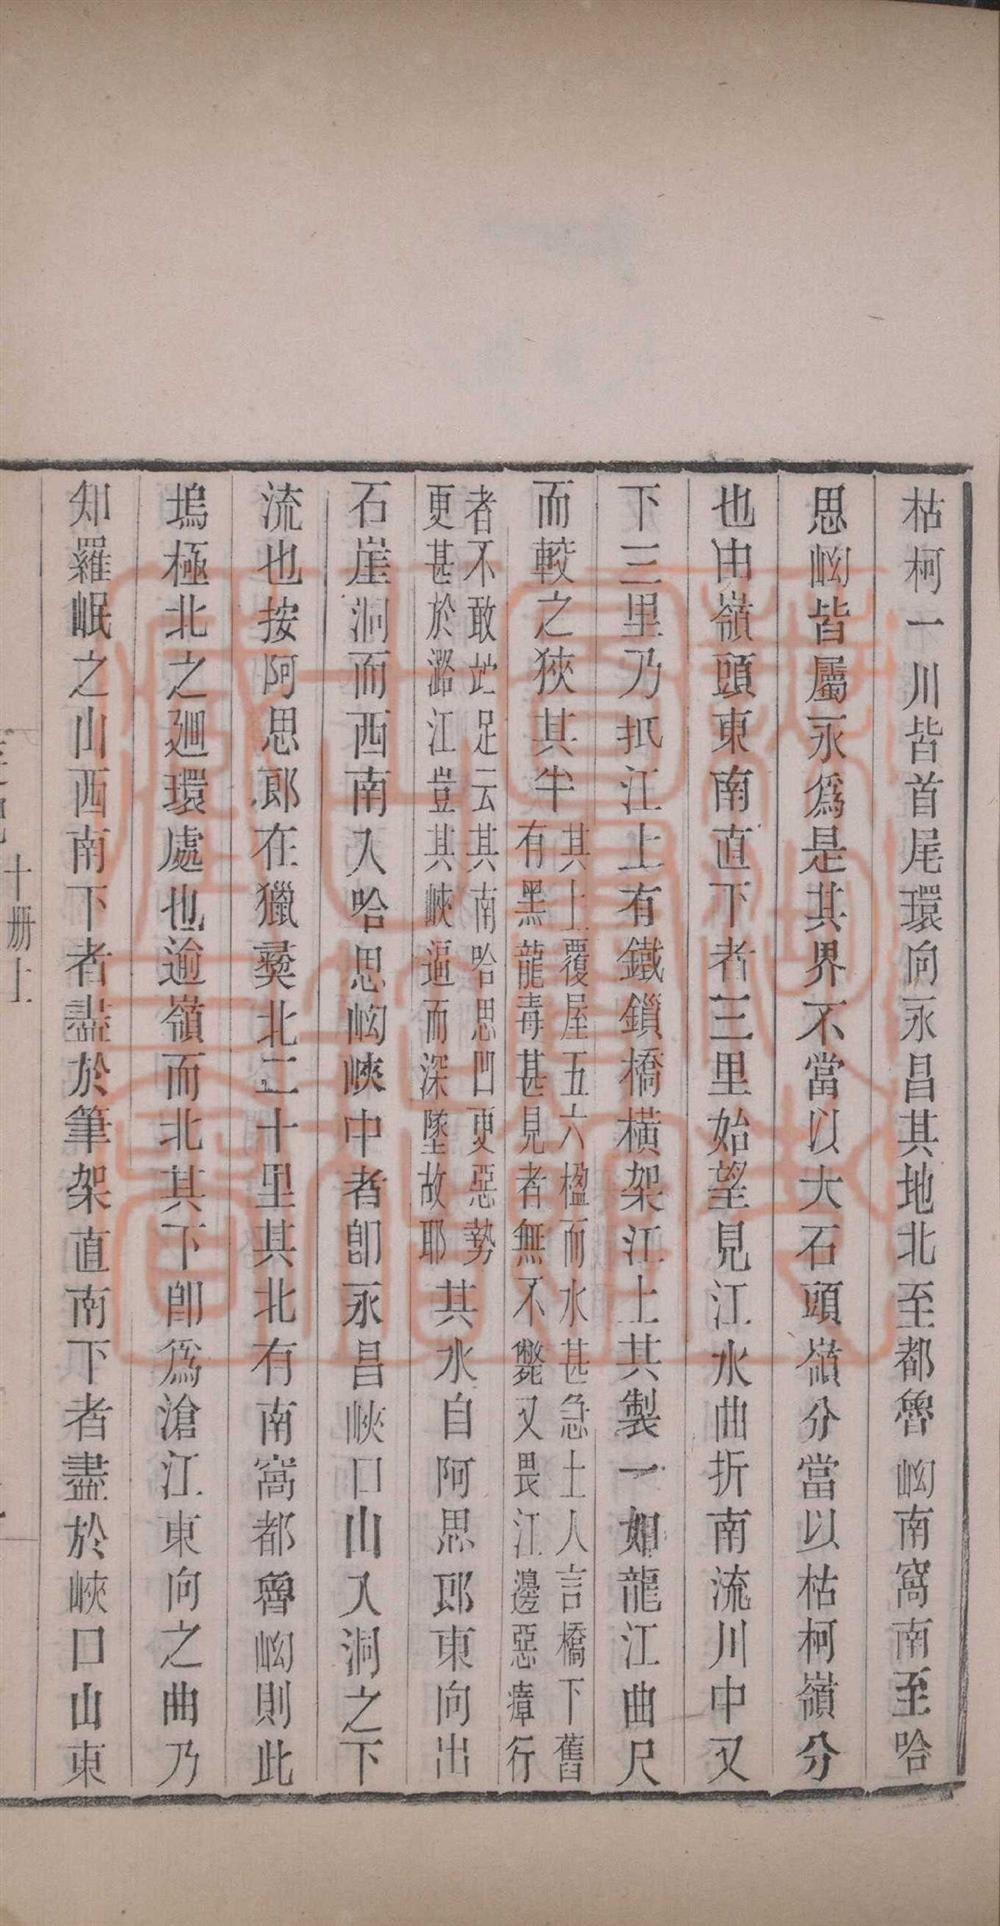 枯柯一川皆首尾環向永昌其地北至都魯㘭南窩南至哈
思㘭皆屬永爲是其界不當以大石頭嶺分當以枯柯嶺分
也由嶺頭東南直下者三里始望見江水曲折南流川中又
下三里乃抵江上有鐵鎖橋橫架江上其製一如龍江曲尺
而較之狹其半
其上覆屋五六楹而水甚急土人言橋下舊
有黑龍毒甚見者無不斃又畏江邊惡瘴行
者不敢竚足云其南哈思凹更惡勢
更甚於潞江豈其峽逼而深墜故耶
其水自阿思郎東向出
石崖洞而西南入哈思㘭峽中者卽永昌峽口山入洞之下
流也按阿思郎在獵彝北二十里其北有南窩都魯㘭則此
塢極北之廻環處也逾嶺而北其下卽爲滄江東向之曲乃
知羅岷之山西南下者盡於筆架直南下者盡於峽口山東
十册上